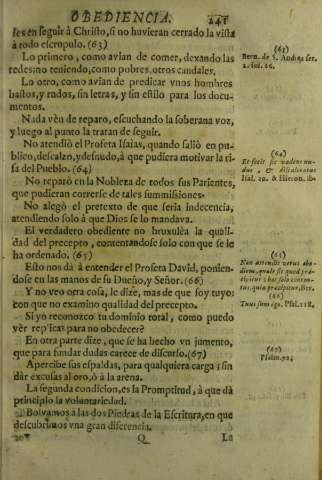 OBEDIENCIA. 241
les en seguir à Christo, si no huvieran cerrado la vista
à todo escrupulo. (63)
Lo primero, como avian de comer, dexando las
redes, no teniendo, como pobres, otros caudales.
Lo otro, como avian de predicar vnos hombres
bastos, y rudos, sin letras, y sin estilo para los docu-
mentos.
Nada vèn de reparo, escuchando la soberana voz,
y luego al punto la tratan de seguir.
No atendiò el Profeta Isaias, quando saliò en pu-
blico, descalzo, y desnudo, à que pudiera motivar la ri-
sa del Pueblo. (64)
No reparò en la Nobleza de todos sus Parientes,
que pudieran correrse de tales summissiones.
No alegò el pretexto de que seria indecencia,
atendiendo solo à que Dios se lo mandava.
El verdadero obediente no bruxulèa la qua-
lidad del precepto, contentandose solo con que se le
ha ordenado. (65)
Esto nos dà à entender el Profeta David, ponien-
dose en las manos de su Dueño, y Señor. (66)
Y no veo otra cosa, le dize, mas de que soy tuyo:
con que no examino qualidad del precepto.
Si yo reconozco tu dominio total, como puedo
vèr replicas para no obedecer?
En otra parte dize, que se ha hecho vn jumento,
que para fundar dudas carece de discurso. (67)
Apercibe sus espaldas, para qualquiera carga: sin
dàr escusas al oro, ò à la arena.
La segunda condicion, es la Promptitud, à que dà
principio la voluntariedad.
Bolvamos à las dos Piedras de la Escritura, en que
descubrimos vna gran diferencia.
Q La
(63)
Bern. de S. Andrea ser.
2. fol. 26.
(64)
Et fecit sic vadens nu-
dus, & discalceatus
Isai. 20. & Hieron. ibi
(65)
Non attendit verus obe-
diens, quale sit quod præ-
cipitur: hoc solo conten-
tus, quia præcipitur, Ber.
(66)
Tuus sum ego. Psal. 118.
(67)
Psalm. 72.